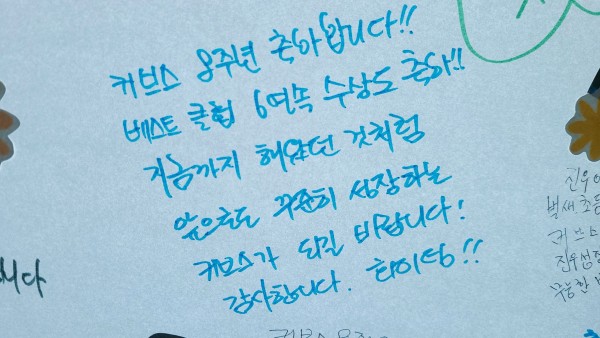 커브스 8주년 축하합니다!!
베스트 클럽 6연속 수상도 축하!!
지금까지 해왔던 것처럼
앞으로도 꾸준히 성장하는
커브스가 되길 바랍니다!
감사합니다. 화이팅!!
니다
진우
벌써 초등
커브스
진우성장